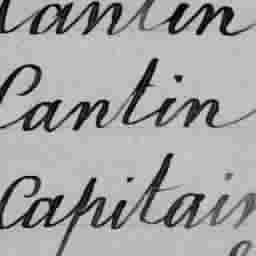 Cantin
Cantin
Capitain